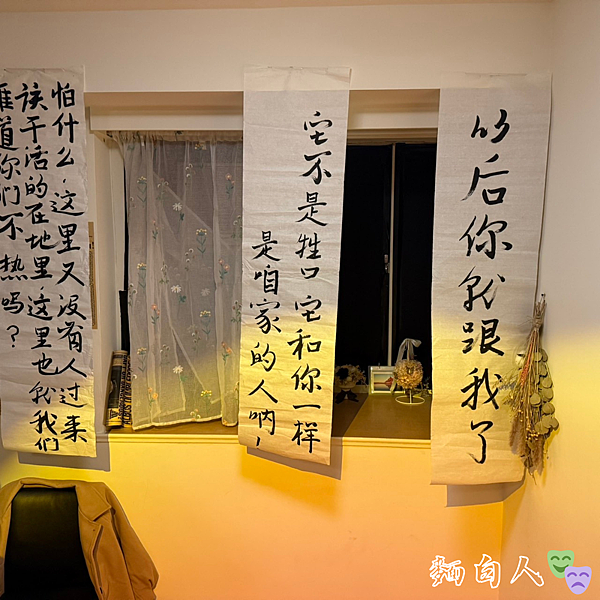 以后你就跟我了
它不是牲口它和你一样
是咱家的人呐!
怕什么,这里又没有人过来
该干活的在地里,这里也就我们
难道你们不热吗?
麵白人